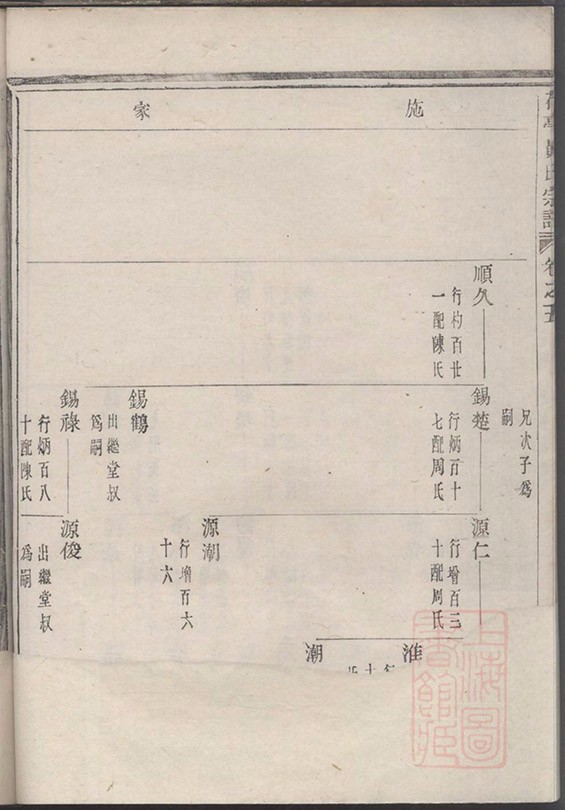 氏宗譜
卷之五
施
家
兄次子為
嗣
順久
行杓百廿
一配陳氏
錫楚
行炳百十
七配周氏
源仁
行增百三
十配周氏
淮
潮
源潮
行增百六
十六
錫鶴
出繼堂叔
為嗣
錫祿
行炳百八
十配陳氏
源俊
出繼堂叔
為嗣
上海圖
書館